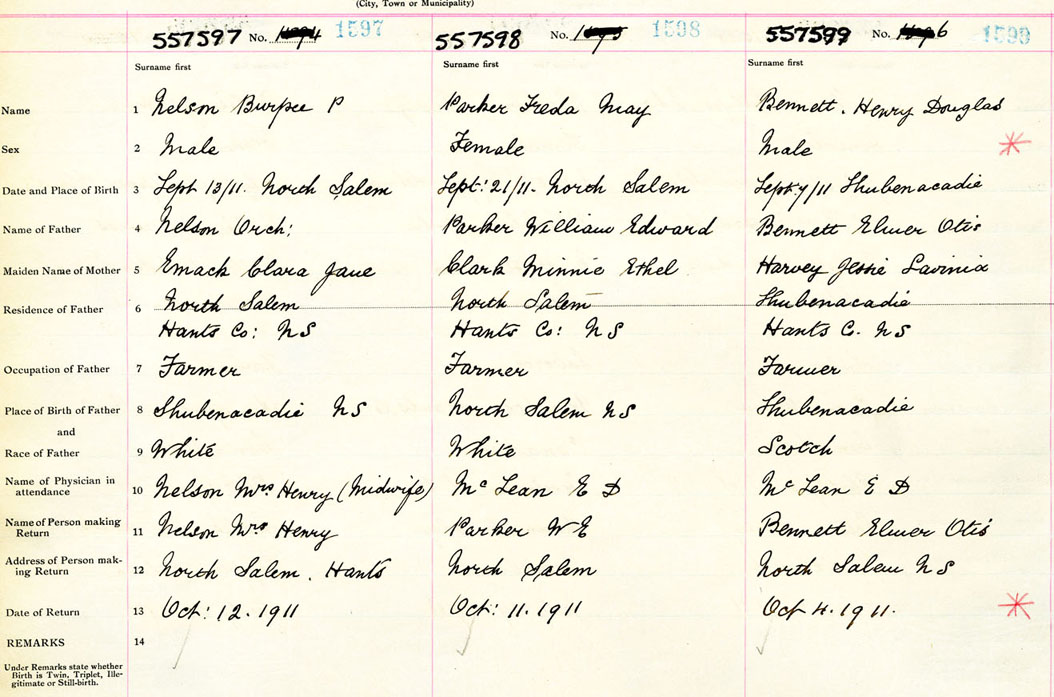 (City, Town or Municipality)
557597 No. 1597 557598 No. 1598 557599 No. 1599
Surname first Surname first Surname first
Name 1 Nelson Burpee P Parker Freda May Bennett, Henry Douglas
Sex 2 Male Female Male
Date and Place of Birth 3 Sept 13/11. North Salem Sept: 21/11- North Salem Sept: 7/11 Shubenacadie
Name of Father 4 Nelson Orch: Parker William Edward Bennett Elmer Otis
Maiden Name of Mother 5 Emack Clara Jane Clark Minnie Ethel Harvey Jessie Lavinia
Residence of Father 6 North Salem North Salem Shubenacadie
Hants Co: NS Hants Co: NS Hants C. NS
Occupation of Father 7 Farmer Farmer Farmer
Place of Birth of Father 8 Shubenacadie NS North Salem NS Shubenacadie
and
Race of Father 9 White White Scotch
Name of Physician in
attendance 10 Nelson Mrs Henry (Midwife) Mc Lean E D Mc Lean E D
Name of Person making
Return 11 Nelson Mrs Henry Parker W E Bennett Elmer Otis
Address of Person mak-
ing Return 12 North Salem. Hants North Salem North Salem NS
Date of Return 13 Oct: 12. 1911 Oct: 11. 1911 Oct 4. 1911.
REMARKS 14
Under Remarks state whether
Birth is Twin, Triplet, Ille-
gitimate or Still-birth.